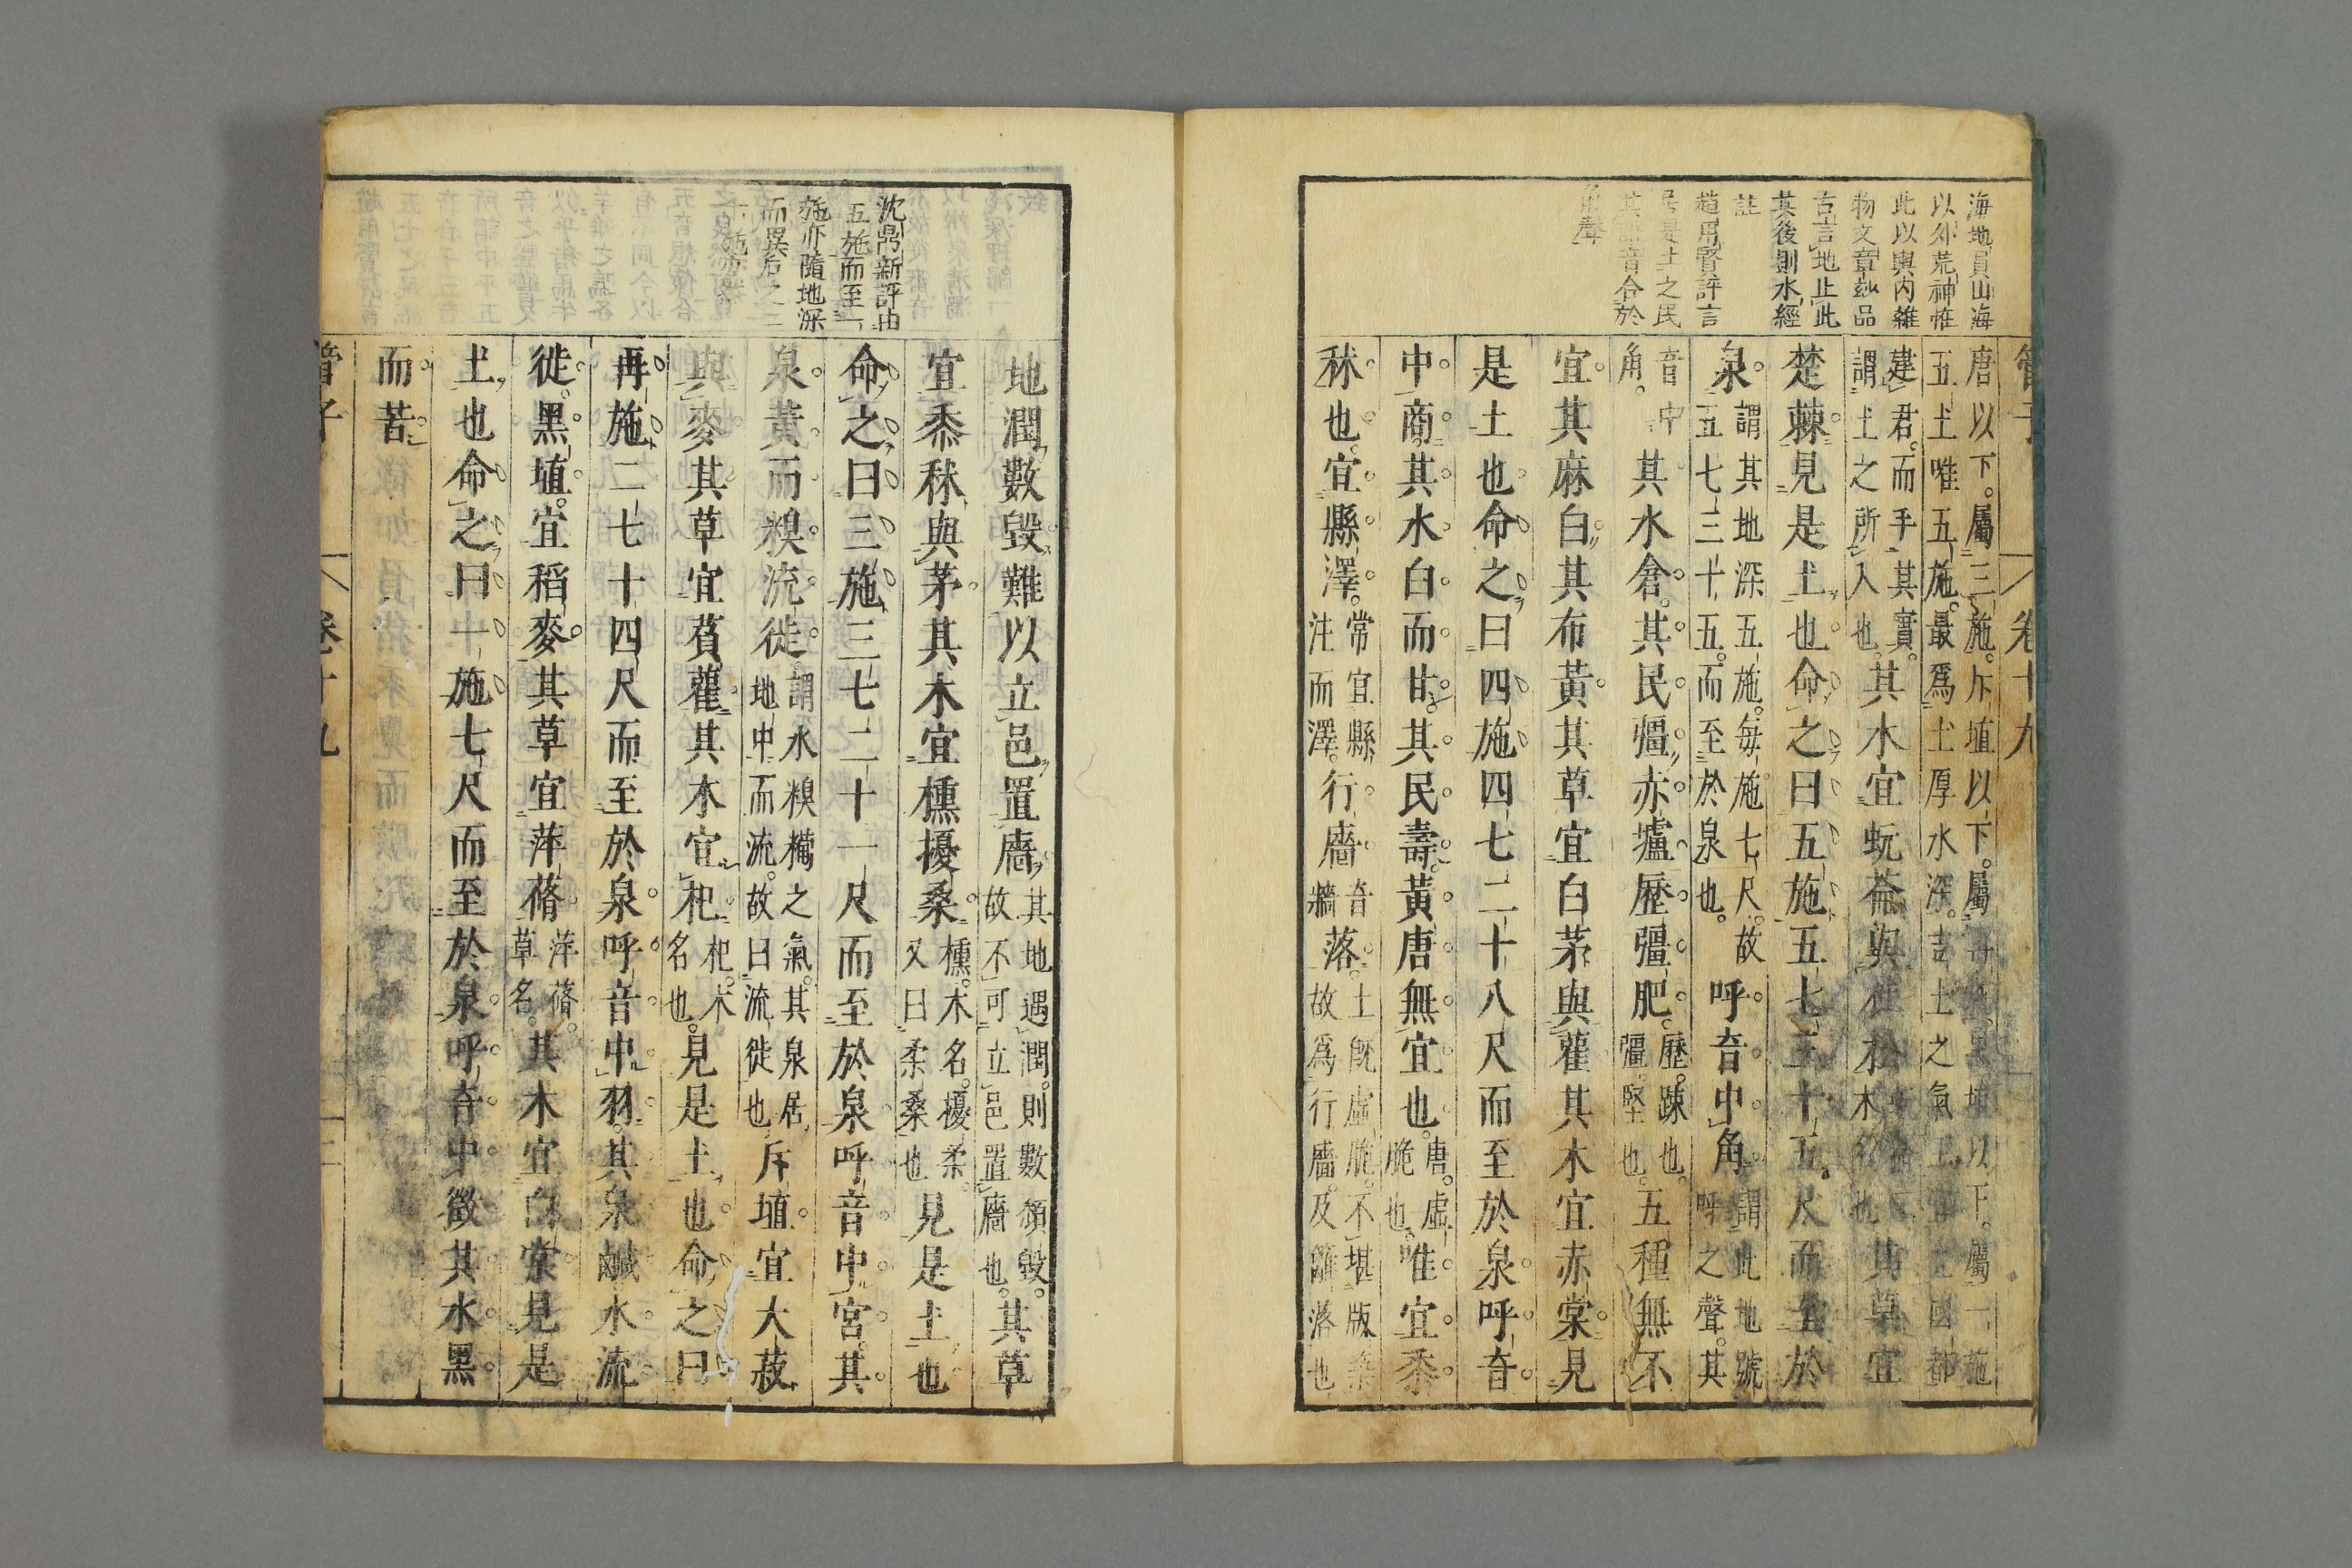 管子
卷十九
海地員山海
以外荒神惟
此以與內雜
物文章玅品
古言地止此
其後則水經
註
趙用賢評言
居是土之民
其音合於
角聲
唐以下屬三施斥埴以下屬再施黑埴以下屬一施
五土唯五施最爲土厚水深吉土之氣土宜立國都
建君而手其實
土之所入也
謂
其木宜蚖菕與杜松
木名也
其草宜
楚棘見是土也命之曰五施五七三十五尺而至於
泉
謂其地深五施每施七尺故
五七三十五而至於泉也
呼音中角
謂此地號
呼之聲其
音中
角
其水倉其民彊赤壚歷彊肥
歷踈也
彊堅也
五種無不
宜其麻白其布黃其草宜白茅與雚其木宜赤棠見
是土也命之曰四施四七二十八尺而至於泉呼音
中商其水白而甘其民壽黃唐無宜也
唐虛
脆也
唯宜黍
秫也宜縣澤
常宜縣
注而澤
行廧
音
牆
落
土旣虛脆不堪版築
故爲行廧及籬落也
沈鼎新評由
五施而至一
施亦隨地深
而異
地潤數毀難以立邑置廧
其地遇潤則數頹毀
故不可立邑置廧也
其草
宜黍秫與茅其木宜櫄擾桑
櫄木名擾柔
又曰柔桑也
見是土也
命之曰三施三七二十一尺而至於泉呼音中宮其
泉黃而糗流徙
謂水糗糒之氣其泉居
地中而流故曰流徙也
斥埴宜大菽
與麥其草宜萯雚其木宜杞
杞木
名也
見是土也命之曰
再施二七十四尺而至於泉呼音中羽其泉鹹水流
徙黑埴宜稻麥其草宜萍蓨
萍蓨
草名
其木宜白棠見是
土也命之曰一施七尺而至於泉呼音中徵其水黑
而苦
管子
卷十九